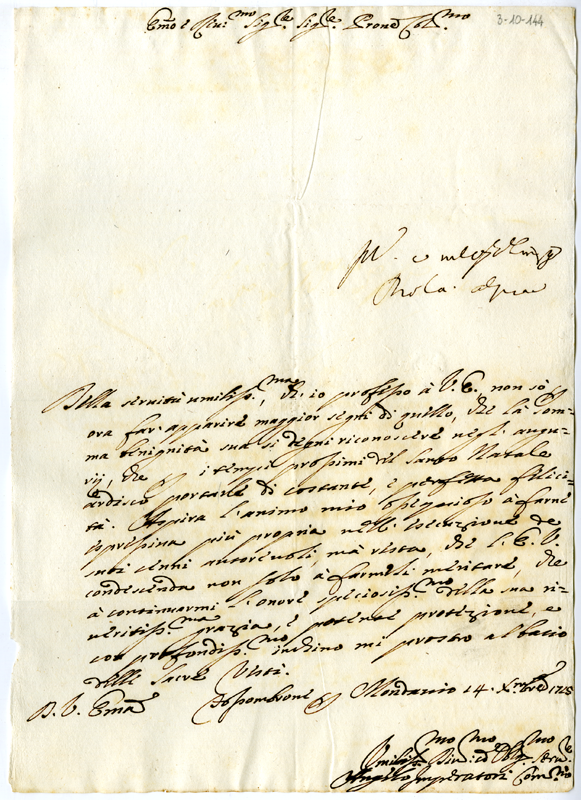 Emo e Rmo Sigre Sigre Prone Colmo
3-10-144
Della servitù umilissma, che io professo à V. E. non sò
ora far apparire maggior segni di quello, che la som-
ma benignità sua si degni riconoscere negl' augu-
rij, che i tempi prossimi del Santo Natale
ardisco portarle di costante, e perfetta felici-
tà. Aspira l'animo mio ossequioso à farne
espressione più propria nell' esecuzione de
suoi cenni autorevoli, mà resta, che l' E. V.
condescenda non solo à farmeli meritare, che
à continuarmi l'onore speciosissmo della sua ri-
veritissma grazia, e potente protezione, e
con profondissmo inchino mi prostro al bacio
delle Sacre Vesti.
D. V. Ema
Mondavio 14. Xmbre
Umilissmo Divmo ed Obblmo Serve
Angelo Imperatori